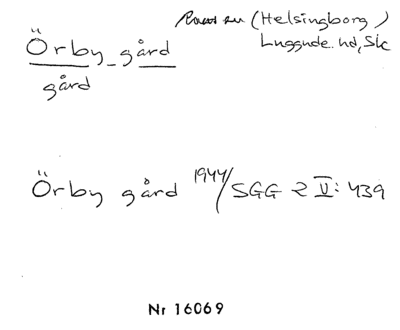 Örby gård
gård
(Helsingborg)
Luggude hd, Sk
Örby gård 1944/SGG 2 V: 439
Nr 16069